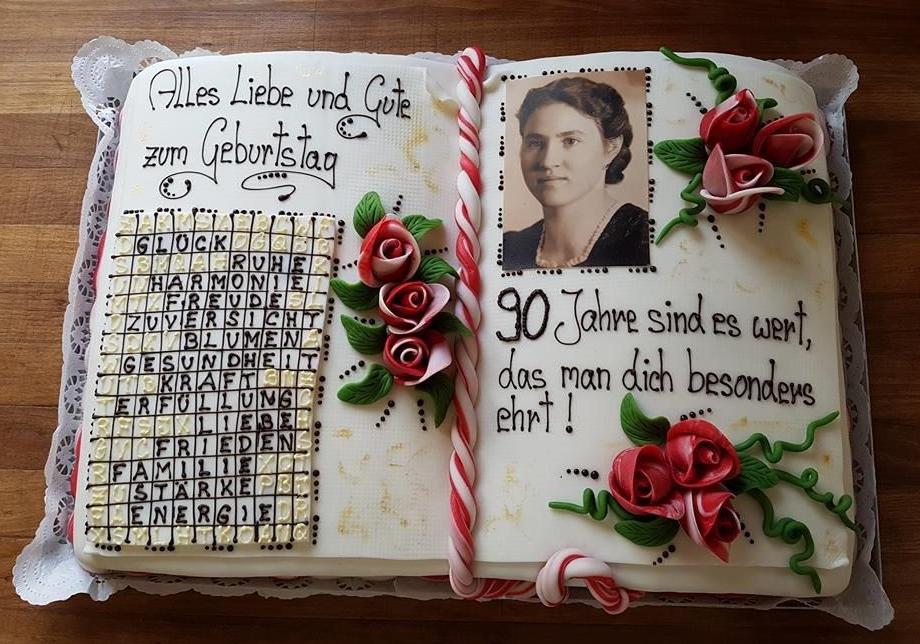 Alles Liebe und Gute
zum Geburtstag
GLÜCK
RUHE
HARMONIE
FREUDE
ZUVERSICHT
BLUMEN
GESUNDHEIT
KRAFT
ERFÜLLUNG
LIEBE
FRIEDEN
FAMILIE
STÄRKE
ENERGIE
90 Jahre sind es wert,
das man dich besonders
ehrt!